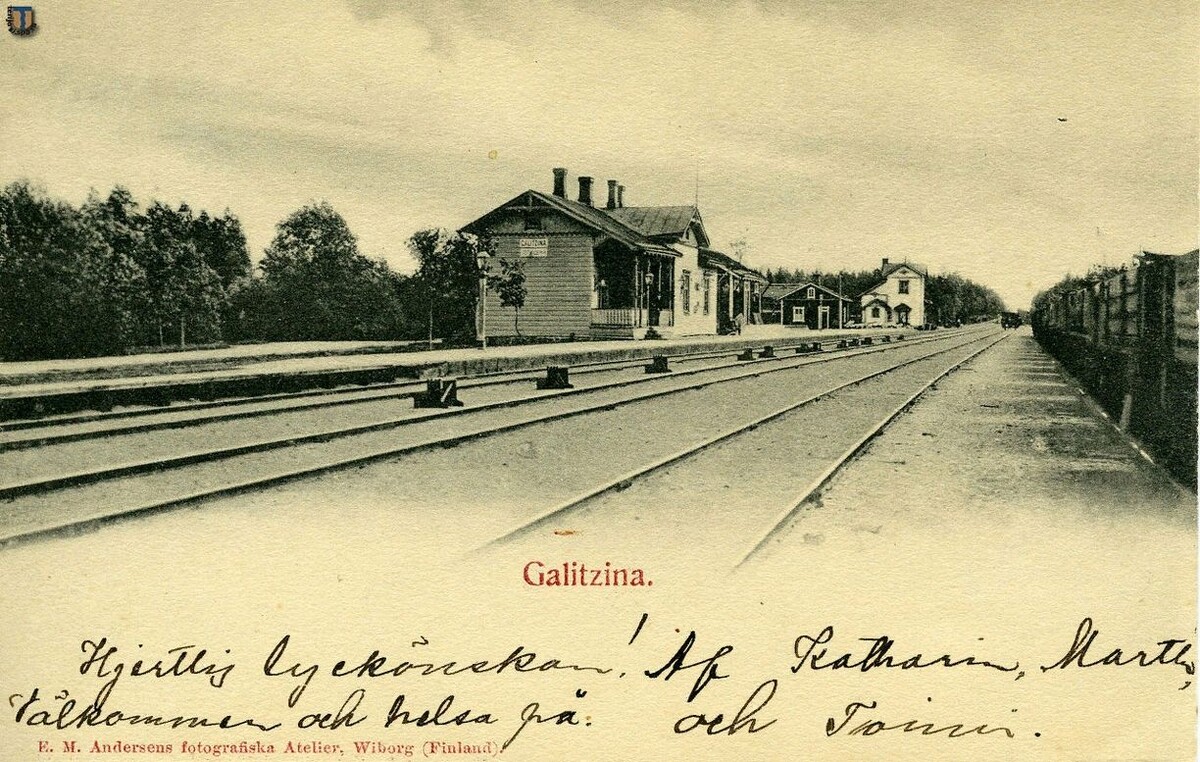 GALITZINA
Galitzina.
Hjertlig lyckönskan! Af Katharin, Marth,
Välkommen och helsa på. och Toini.
E. M. Andersens fotografiska Atelier, Wiborg (Finland).